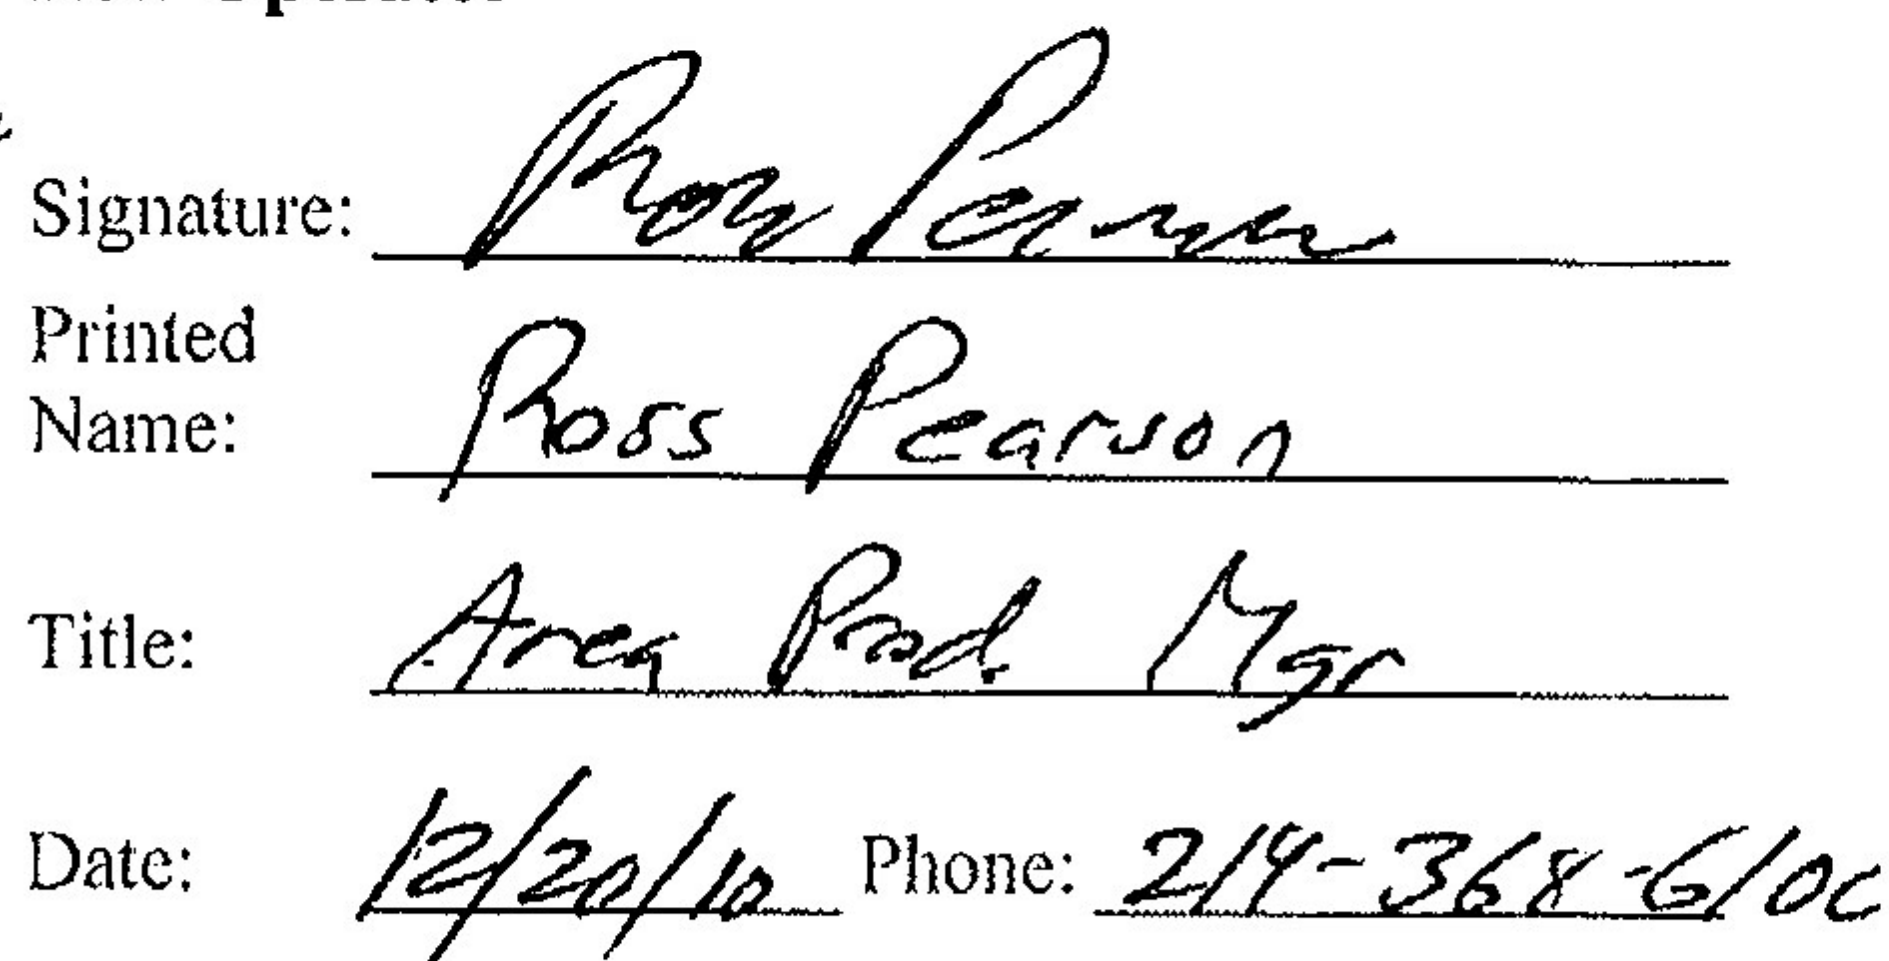 Signature: Ross Pearson
Printed
Name: Ross Pearson
Title: Area Prod. Mgr
Date: 12/20/10 Phone: 214-368-610